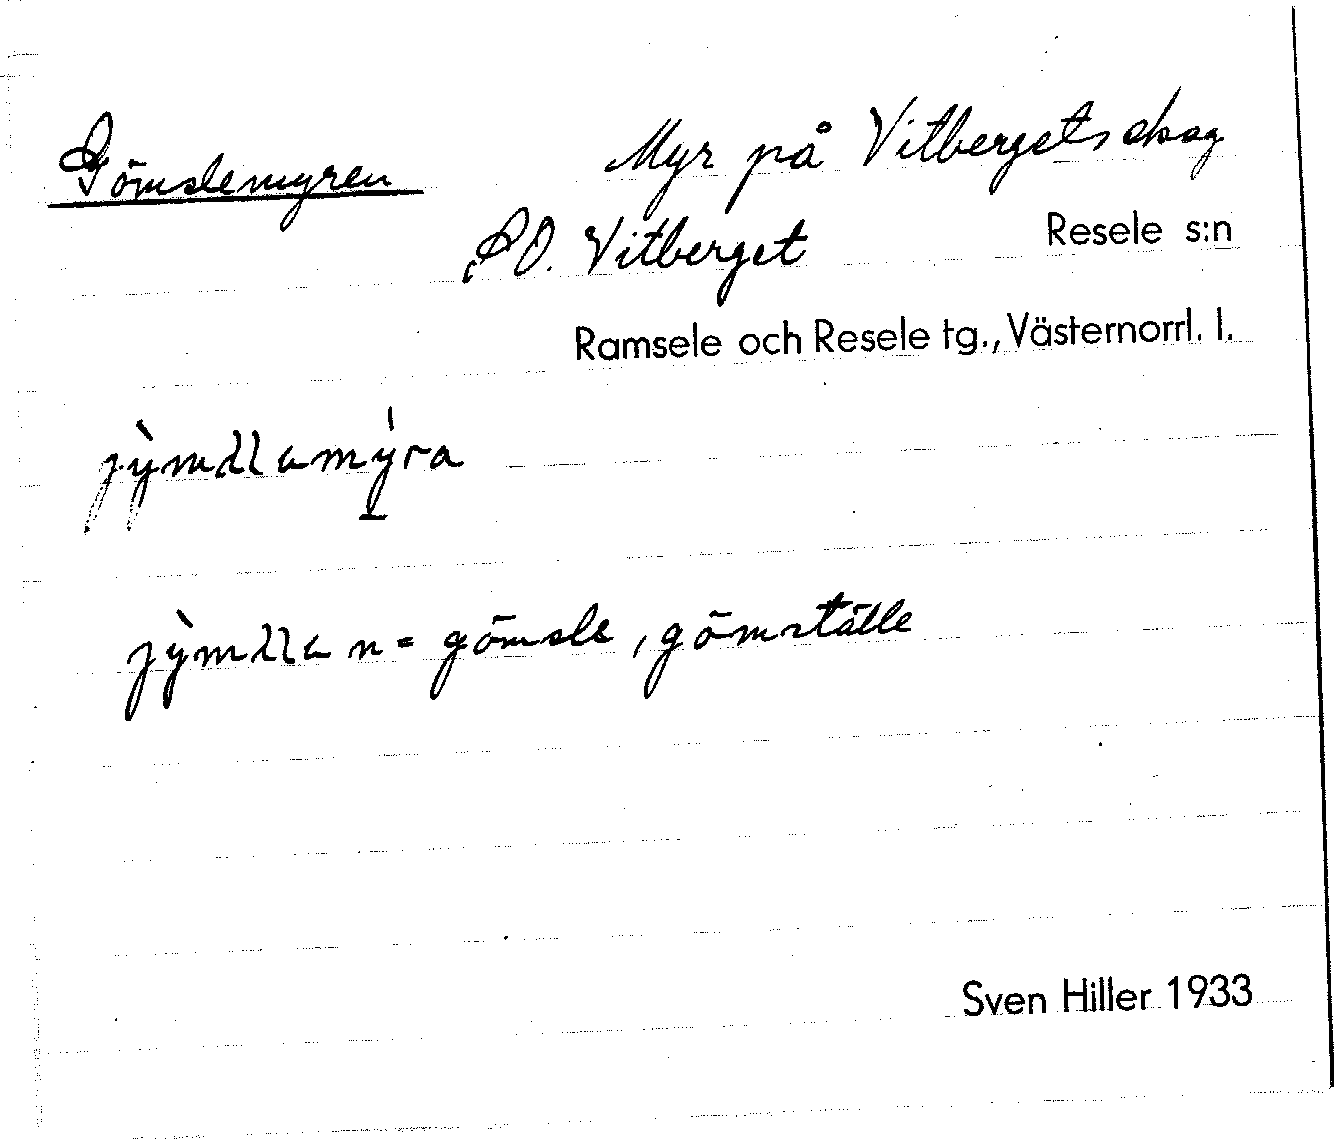 Gömslemyren Myr på Vitbergets skog
SO. Vitberget Resele s:n
Ramsele och Resele tg., Västernorrl. l.
n = gömsle, gömställe
Sven Hiller 1933